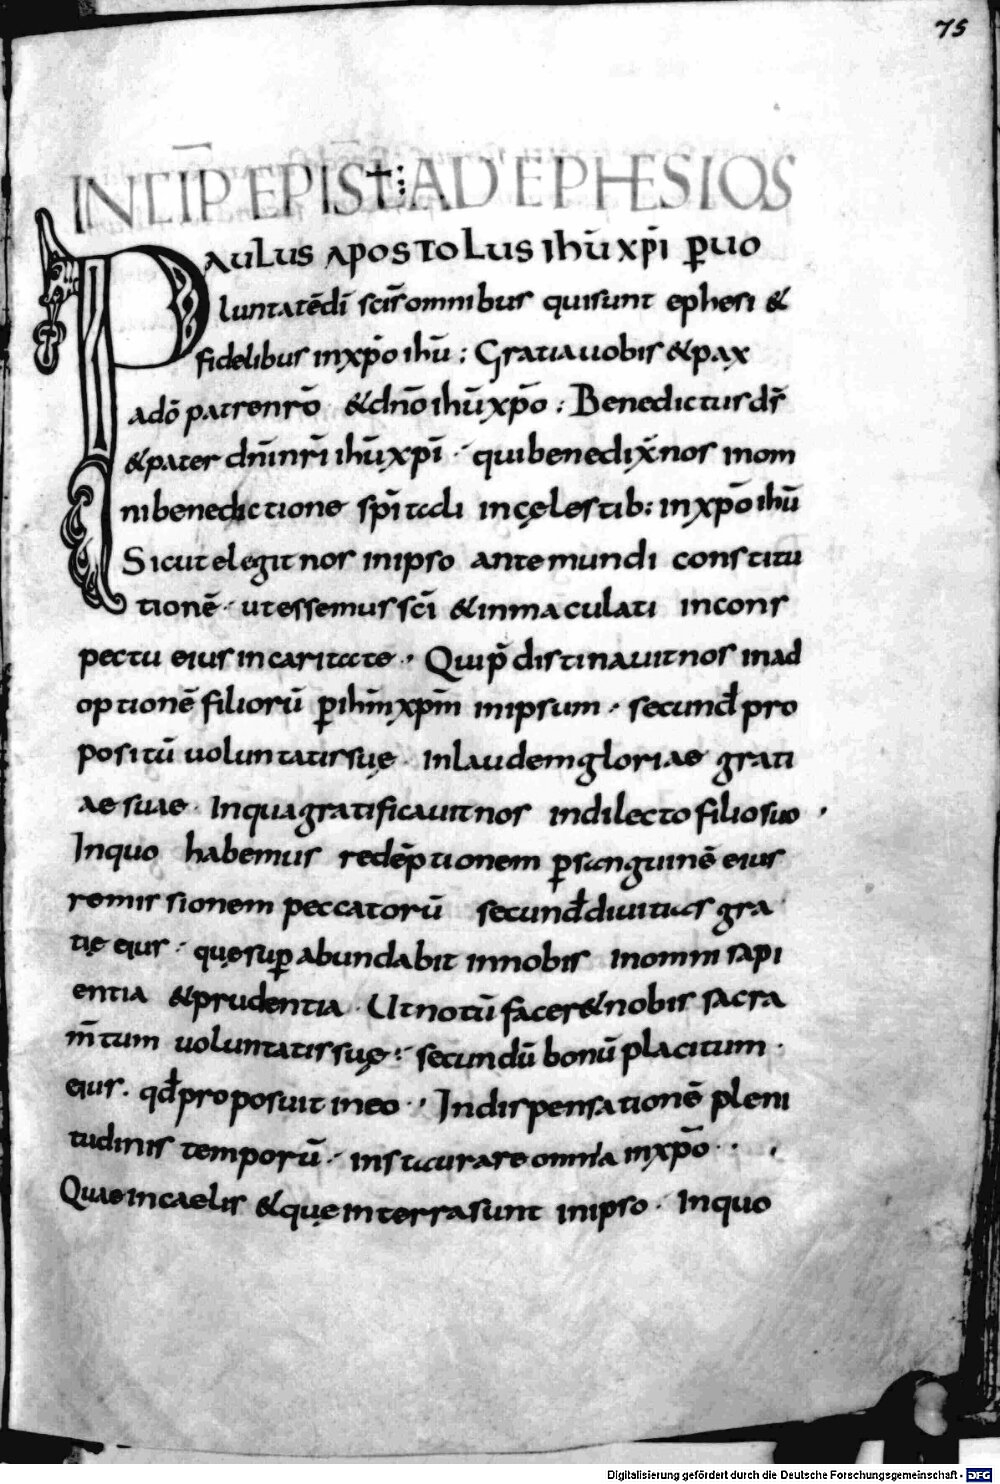 75
INCIP̄ EPIST̄ AD EPHESIOS
PAULUS APOSTOLUS ihū xp̄i ꝑ uo
luntatē dī scīs omnibus qui sunt ephesi &
fidelibus in xp̄o ihū ; Gratia uobis & pax
a dō patre nrō & dnō ihū xp̄o : Benedictus ds̄
& pater dnī nrī ihū xp̄i · qui benedix̄ nos in om
ni benedictione sp̄itali in cęlestib: in xp̄o ihū
Sicut elegit nos in ipso ante mundi constitu
tionē · ut essemus scī & inmaculati in cons
pectu eius in caritate · Qui p̄distinauit nos in ad
optionē filiorū ꝑ ihm̄ xp̄m in ipsum · secund̄ pro
positū uoluntatis suę · In laudem gloriae grati
ae suae · In qua gratificauit nos in dilecto filio suo ·
In quo habemus redēptionem ꝑ sanguinē eius
remissionem peccatorū secund̄ diuitias gra
tię eius · quę suꝑabundabit in nobis in omni sapi
entia & prudentia · Ut notū facer& nobis sacra
m̄tum uoluntatis suę · secundū bonū placitum ·
eius · qd̄ proposuit in eo · In dispensationē pleni
tudinis temporū · instaurare omnia in xp̄o · ·
Quae in caelis & quę in terra sunt in ipso · In quo
Digitalisierung gefördert durch die Deutsche Forschungsgemeinschaft - DFG